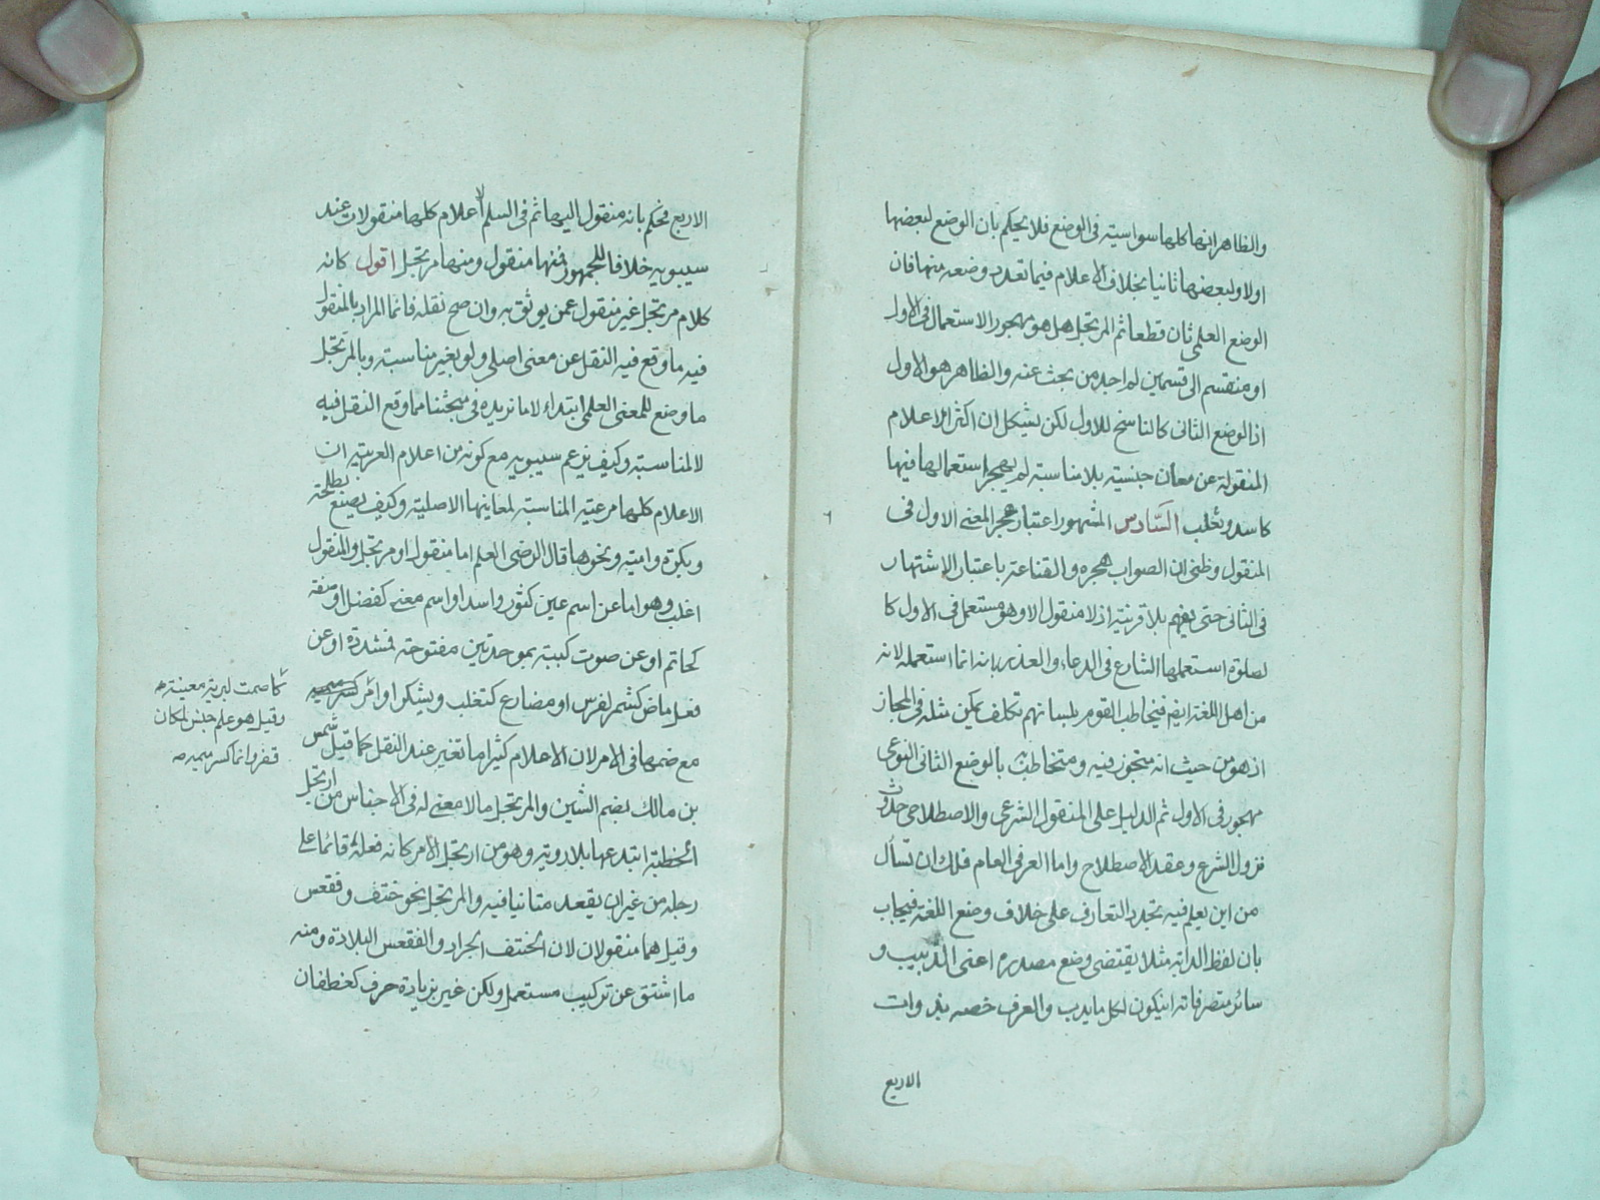 والظاهر انها كلها سواسية فى الوضع فلا يحكم بان الوضع لبعضها
اولا ولبعضها ثانيا بخلاف الاعلام فيما تعدد وضعه منها فان
الوضع العلمى ثان قطعا ثم المرتجل هل هو مهجور الاستعمال فى الاول
او منقسم الى قسمين لم اجد من بحث عنه والظاهر هو الاول
اذ الوضع الثانى كالناسخ للاول لكن يشكل ان اكثر الاعلام
المنقولة عن معان جنسية بلا مناسبة لم يهجر استعمالها فيها
كاسد وتغلب السادس المشهور اعتبار هجر المعنى الاول فى
المنقول وظنى ان الصواب هجره والقناعة باعتبار الاشتهار
فى الثانى حتى يفهم بلا قرينة اذ لا منقول الا وهو مستعمل فى الاول كا
لصلوة استعملها الشارع فى الدعاء والعذر بانه انما استعمله لانه
من اهل اللغة ايضم فيخاطب القوم بلسانهم تكلف يمكن مثله فى المجاز
اذ هو من حيث انه متجوز فيه ومتخاطب بالوضع الثانى النوعى
مهجور فى الاول ثم الدليل على المنقول الشرعى والاصطلاحى حدوث
نزول الشرع وعقد الاصطلاح واما العرفى العام فلك ان تسأل
من اين يعلم فيه تجدد التعارف على خلاف وضع اللغة فيجاب
بان لفظ الدابة مثلا يقتضى وضع مصدره اعنى الدبيب و
سائر متصرفاته ان يكون لكل ما يدب والعرف خصه بذوات
الاربع
الاربع فحكم بانه منقول اليها ثم فى السلم الاعلام كلها منقولات عند
سيبويه خلافا للجمهور فمنها منقول ومنها مرتجل اقول كانه
كلام مرتجل غير منقول عمن يوثق به وان صح نقله فانما المراد بالمنقول
فيه ما وقع فيه النقل عن معنى اصلى ولو بغير مناسبة وبالمرتجل
ما وضع للمعنى العلمى ابتداء لا ما نريده فى مبحثنا مما وقع النقل فيه
لا لمناسبة وكيف يزعم سيبويه مع كونه من اعلام العربية ان
الاعلام كلها مرعية المناسبة لمعانيها الاصلية وكيف يصنع بطلحة
وبكرة وامية ونحوها قال الرضى العلم اما منقول او مرتجل والمنقول
اغلب وهو اما عن اسم عين كثور واسد او اسم معنى كفضل او صفة
كحاتم او عن صوت كببة بموحدتين مفتوحة فمشددة او عن
فعل ماض كشمر لفرس او مضارع كتغلب ويشكر او امر
مع ضمها فى الامر لان الاعلام كثيرا ما تغير عند النقل كما قيل شمس
بن مالك بضم الشين والمرتجل ما لا معنى له فى الاجناس من ارتجل
الخطبة ابتدعها بلا روية وهو من ارتجل الامر كانه فعله قائما على
رجله من غير ان يقعد متانيا فيه والمرتجل نحو ختف وفقعس
وقيل هما منقولان لان الختف الجراد والفقعس البلادة ومنه
ما اشتق عن تركيب مستعمل ولكن غير بزيادة حرف كغطفان
كاصمت لبرية معينة
وقيل هو علم جنس لمكان
قفر وانما كسر ميمه